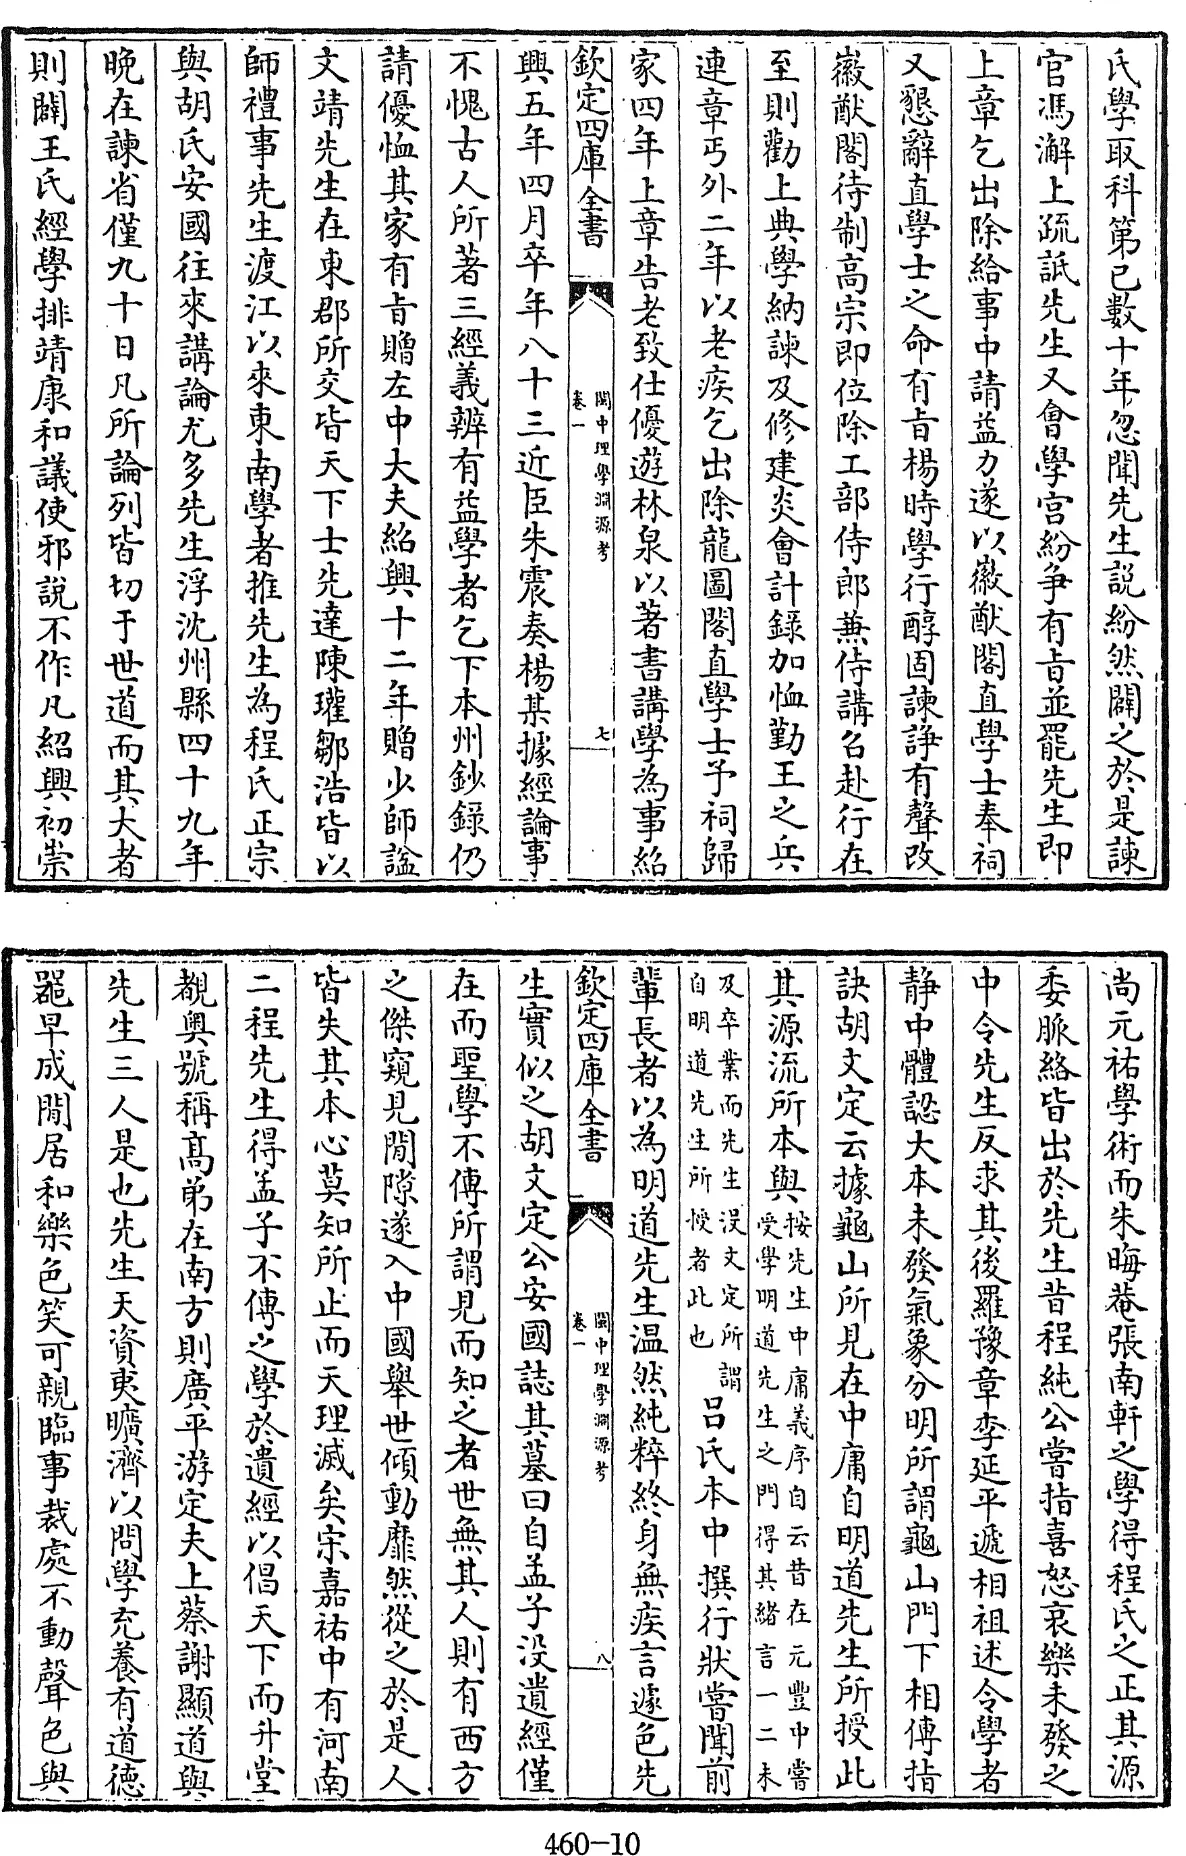 氏學取科第已數十年忽聞先生説紛然闢之於是諫
官馮澥上疏詆先生又會學官紛争有旨並罷先生即
上章乞出除給事中請益力遂以徽猷閣直學士奉祠
又懇辭直學士之命有旨楊時學行醇固諫諍有聲改
徽猷閣待制高宗即位除工部侍郎兼侍講召赴行在
至則勸上典學納諫及修建炎會計錄加恤勤王之兵
連章丐外二年以老疾乞出除龍圖閣直學士予祠歸
家四年上章告老致仕優遊林泉以著書講學為事紹
欽定四庫全書
閩中理學淵源考
卷一
七
興五年四月卒年八十三近臣朱震奏楊某據經論事
不愧古人所著三經義辨有益學者乞下本州鈔錄仍
請優恤其家有旨贈左中大夫紹興十二年贈少師諡
文靖先生在東郡所交皆天下士先達陳瓘鄒浩皆以
師禮事先生渡江以來東南學者推先生為程氏正宗
與胡氏安國往來講論尤多先生浮沈州縣四十九年
晩在諫省僅九十日凡所論列皆切于世道而其大者
則闢王氏經學排靖康和議使邪說不作凡紹興初崇
尚元祐學術而朱晦菴張南軒之學得程氏之正其源
委脈絡皆出於先生昔程純公嘗指喜怒哀樂未發之
中令先生反求其後羅豫章李延平遞相祖述令學者
静中體認大本未發氣象分明所謂龜山門下相傳指
訣胡文定云據龜山所見在中庸自明道先生所授此
其源流所本與按先生中庸義序自云昔在元豐中嘗
受學明道先生之門得其緒言一二未
及卒業而先生沒文定所謂
自明道先生所授者此也吕氏本中撰行狀嘗聞前
輩長者以為明道先生温然純粹終身無疾言遽色先
欽定四庫全書
閩中理學淵源考
卷一
八
生實似之胡文定公安國誌其墓曰自孟子没遺經僅
在而聖學不傳所謂見而知之者世無其人則有西方
之傑窺見閒隙遂入中國舉世傾動靡然從之於是人
皆失其本心莫知所止而天理滅矣宋嘉祐中有河南
二程先生得孟子不傳之學於遺經以倡天下而升堂
覩奥號稱高弟在南方則廣平游定夫上蔡謝顯道與
先生三人是也先生天資夷曠濟以問學充養有道德
器早成閒居和樂色笑可親臨事裁處不動聲色與
460-10